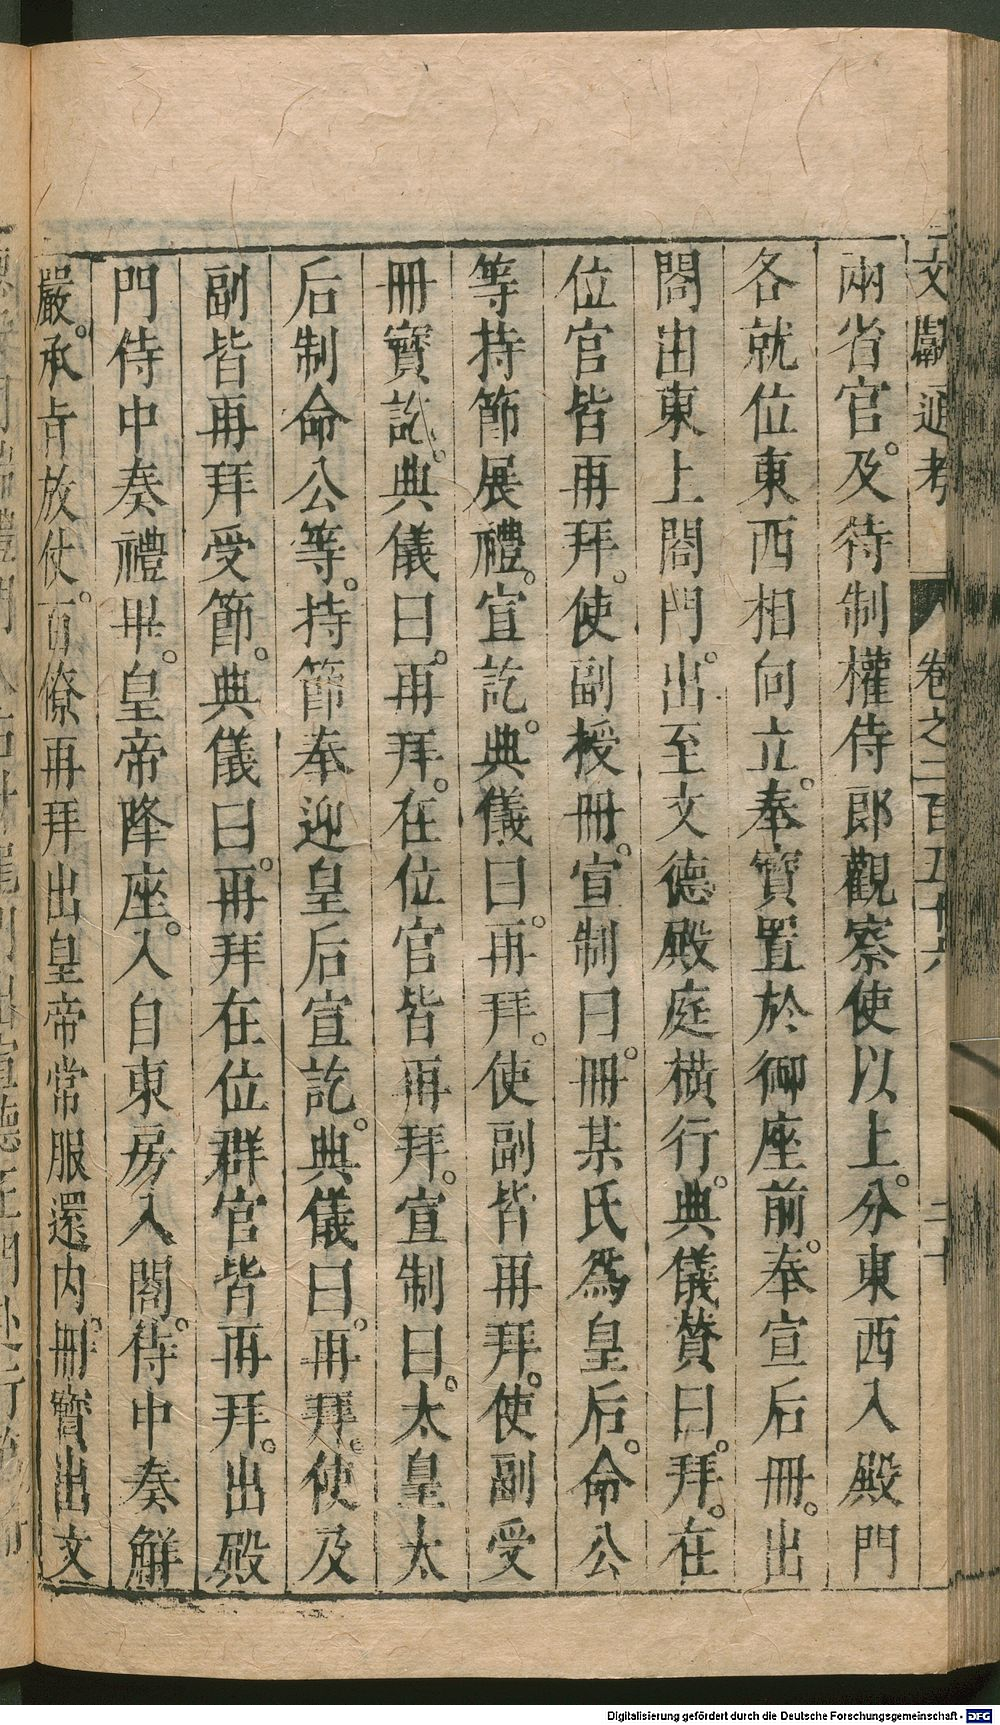 文獻通考 卷之二百五十六 二十
兩省官。及待制權侍郎觀察使以上。分東西入殿門
各就位東西相向立。奉寶置於御座前。奉宣后冊。出
閤由東上閤門。出至文德殿庭橫行。典儀贊曰。拜。在
位官皆再拜。使副授冊。宣制曰。冊某氏爲皇后。命公
等持節展禮。宣訖。典儀曰。再拜。使副皆再拜。使副受
冊寶訖。典儀曰。再拜。在位官皆再拜。宣制曰。太皇太
后制命公等。持節奉迎皇后宣訖。典儀曰。再拜。使及
副皆再拜受節。典儀曰。再拜在位群官皆再拜。出殿
門侍中奏禮畢。皇帝降座。入自東房入閤。待中奏解
嚴。承㫖放仗。百僚再拜出皇帝常服還内。冊寶出文
Digitalisierung gefördert durch die Deutsche Forschungsgemeinschaft - DFG